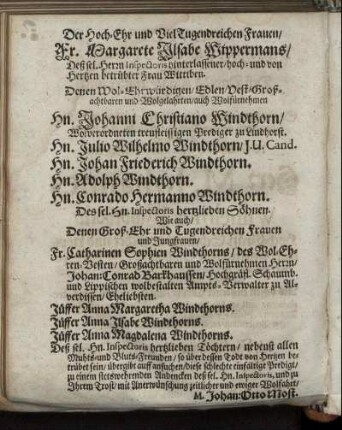 Der Hoch-Ehr und VielTugendreichen Frauen/
Fr. Margarete Jlsabe Wippermans/
Deß sel. Herrn Inspectoris hinterlassener/hoch- und von
Hertzen betrübter Frau Wittiben.
Denen Wol-Ehrwürdigen/Edlen/Vest/Groß-
achtbaren und Wolgelahrten/auch Wolfürnehmen
Hn. Johanni Christiano Windthorn/
Wolverordneten treufleissigen Prediger zu Lindhorst.
Hn. Julio Wilhelmo Windthorn/J.U. Cand.
Hn. Johan Friederich Windthorn.
Hn. Adolph Windthorn.
Hn. Conrado Hermanno Windthorn.
Des sel. Hn. Inspectoris hertzlieben Söhnen.
Wie auch/
Denen Groß-Ehr und Tugendreichen Frauen
und Jungfrauen/
Fr. Catharinen Sophien Windthorns/des Wol-Eh-
ren-Vesten/Großachtbaren und Wolfürnehmen Herrn/
Johan: Conrad Barkhausen/Hochgräfl. Schaumb.
und Lippischen wolbestalten Ampts-Verwalter zu Al-
verdissen/Eheliebsten.
Jüffer Anna Margaretha Windthorns.
Jüffer Anna Jlsabe Windthorns.
Jüffer Anna Magdalena Windthorns.
Deß sel. Hn. Inspectoris hertzlieben Töchtern/nebenst allen
Muhts-und Bluts-Freunden/so über dessen Todt von Hertzen be-
trübet sein/übergibt auff ansuchen/diese schlechte einfältige Predigt/
zu einem stetswehrenden Andencken deß sel. Hn. Inspectoris, und zu
Ihrem Trost/mit Anerwünschung zeitlicher und ewiger Wolfahrt/
M. Johan: Otto Most.